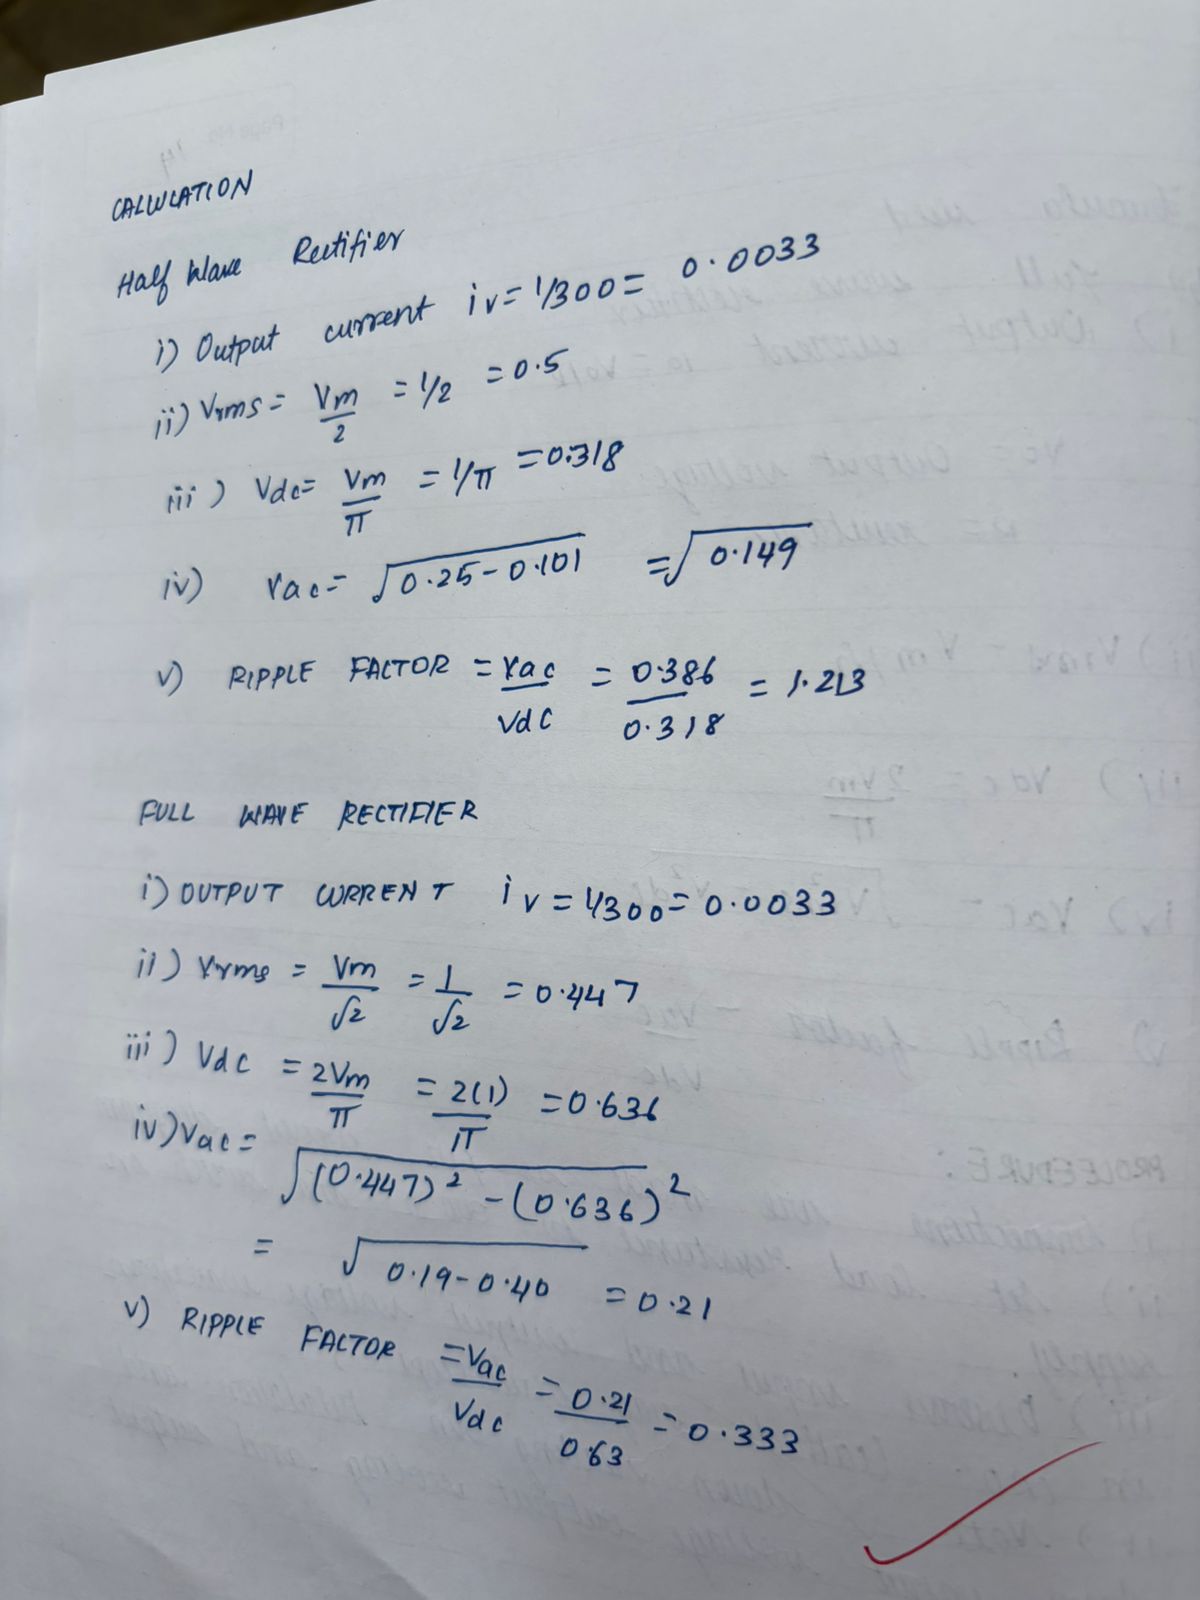 CALULATION
Half Wave Rectifier
i) Output current iv = 1/300 = 0.0033
ii) Vrms = Vm/2 = 1/2 = 0.5
iii) Vdc = Vm/π = 1/π = 0.318
iv) Vac = √(0.25 - 0.101) = √0.149
v) RIPPLE FACTOR = Vac/Vdc = 0.386/0.318 = 1.213
FULL WAVE RECTIFIER
i) OUTPUT CURRENT iv = 1/300 = 0.0033
ii) Vrms = Vm/√2 = 1/√2 = 0.447
iii) Vdc = 2Vm/π = 2(1)/π = 0.636
iv) Vac = √((0.447)² - (0.636)²)
= √(0.19 - 0.40) = 0.21
v) RIPPLE FACTOR = Vac/Vdc = 0.21/0.63 = 0.333